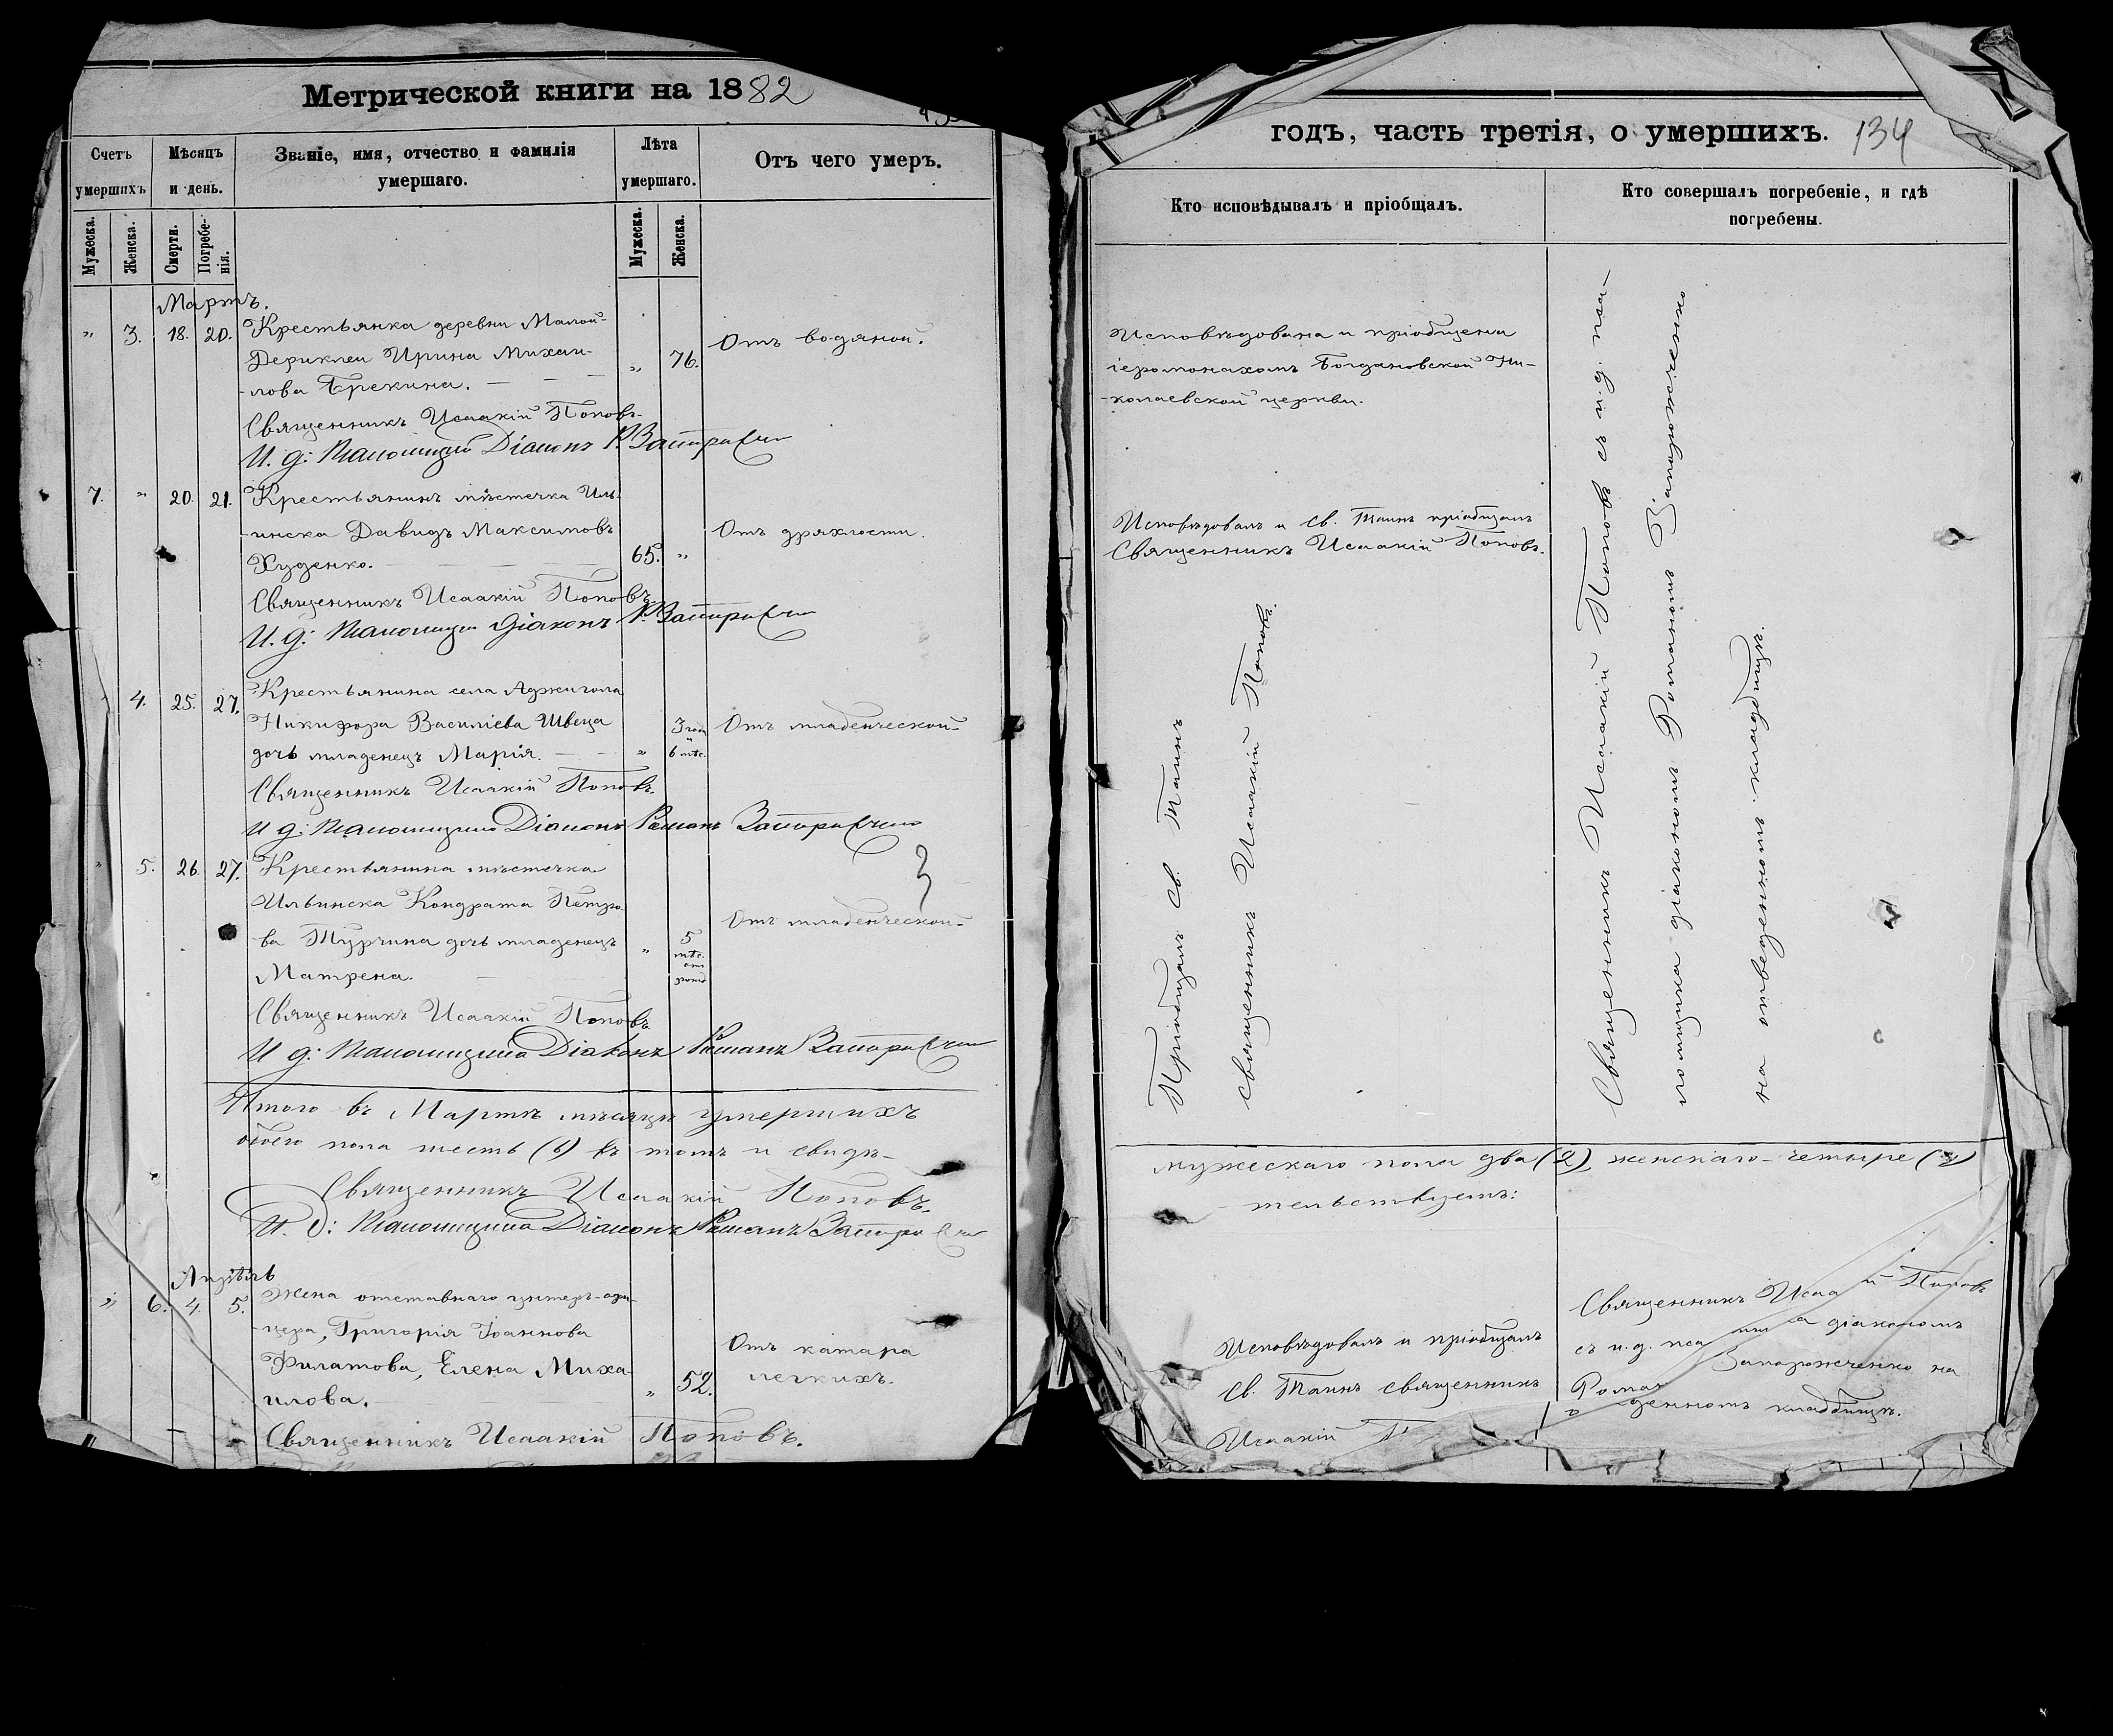 Метрической книги на 1882
Счетъ умершихъ
Мѣсяцъ и день.
Званіе, имя, отчество и фамилія умершаго.
Лѣта умершаго.
Отъ чего умеръ.
Мужеска.
Женска.
Смерти.
Погребенія.
Мужеска.
Женска.
Мартъ.
" 3. 18. 20. Крестьянка деревни Малой-
Дериклеи Ирина Михаи-
-лова Брекина. " 76. Отъ водяной.
Священникъ Исаакій Поповъ.
И. д: Псаломщика Діаконъ Р. Запорожченко
7. " 20. 21. Крестьянинъ мѣстечка Иль-
-инска Давидъ Максимовъ Отъ дряхлости.
Худенко. 65. "
Священникъ Исаакій Поповъ.
И. д: Псаломщика Діаконъ Р. Запорожченко
4. 25. 27. Крестьянина села Аджигола
Никифора Василіева Швеца 3 года Отъ младенческой
дочь младенецъ Марія. " и 6 мѣс.
Священникъ Исаакій Поповъ.
И д: Псаломщика Діаконъ Романъ Запорожченко
" 5. 26. 27. Крестьянина мѣстечка
Ильинска Кондрата Петро- Отъ младенческой
ва Турчина дочь младенецъ " 5 мѣс.
Матрена.
Священникъ Исаакій Поповъ.
И д: Псаломщика Діаконъ Романъ Запорожченко
Итого въ Мартѣ мѣсяцѣ умершихъ
обоего пола шесть (6) въ томъ и свидѣ-
Священникъ Исаакій Поповъ.
И. д: Псаломщика Діаконъ Романъ Запорожченко
Апрѣль
" 6. 4. 5. Жена отставнаго унтеръ-офи-
цера, Григорія Іоаннова
Филатова, Елена Миха- Отъ катара
илова. " 52. легкихъ.
Священникъ Исаакій Поповъ.
годъ, часть третія, о умершихъ. 134
Кто исповѣдывалъ и пріобщалъ.
Кто совершалъ погребеніе, и гдѣ погребены.
Исповѣдована и пріобщена
іеромонахомъ Богдановской Ни-
-колаевской церкви.
Исповѣдовалъ и св. Таинъ пріобщалъ
Священникъ Исаакій Поповъ.
Пріобщалъ св. Таинъ
священникъ Исаакій Поповъ.
Священникъ Исаакій Поповъ съ и. д. пса-
ломщика діакономъ Романомъ Запорожченко
на отведенномъ кладбищѣ.
мужескаго пола два (2), женскаго четыре (4)
тельствуемъ:
Исповѣдовалъ и пріобщалъ
св. Таинъ священникъ
Исаакій П
Священникъ Исаа й Поповъ
съ и. д. пса а діакономъ
Роман Запорожченко на
денномъ кладбищѣ.